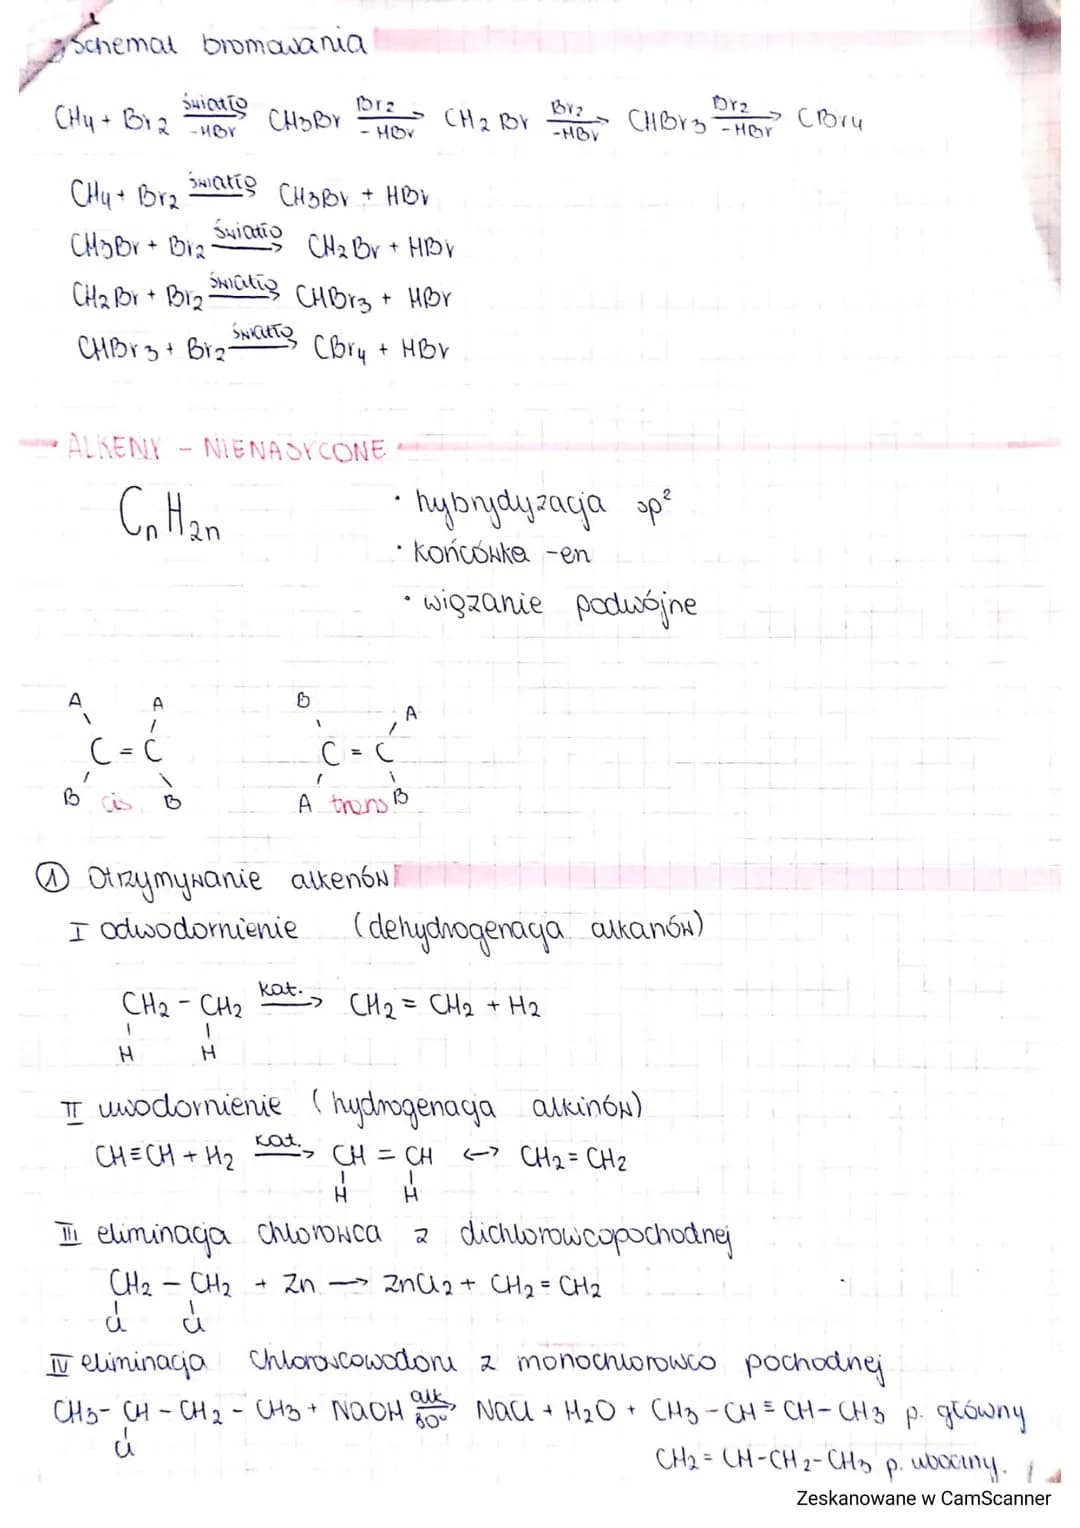 Schemat bromowania
CH4 + Br2 światło -HBr CH3Br Br2 → -HBr CH2Br Br2 → -HBr CHBr3 Br2 → -HBr CBr4
CH4 + Br2 światło CH3Br + HBr
CH3Br + Br2 światło → CH2Br + HBr
CH2Br + Br2 światło → CHBr3 + HBr
CHBr3 + Br2 światło → CBr4 + HBr
ALKENY - NIENASYCONE
CnH2n
• hybrydyzacja sp²
• końcówka -en
• wiązanie podwójne
A A B A
C = C C = C
B cis B A trans B
① Otrzymywanie alkenów
I odwodornienie (dehydrogenacja alkanów)
CH2 - CH2 kat. → CH2 = CH2 + H2
H H
II uwodornienie (hydrogenacja alkinów)
CH≡CH + H2 kat. → CH = CH ↔ CH2 = CH2
H H
III eliminacja chlorowca z dichlorowcopochodnej
CH2 - CH2 + Zn → ZnCl2 + CH2 = CH2
Cl Cl
IV eliminacja chlorowcowodoru z monochlorowco pochodnej
CH3 - CH - CH2 - CH3 + NaOH alk. 80° → NaCl + H2O + CH3 - CH ≡ CH - CH3 p. główny
Cl
CH2 = CH - CH2 - CH3 p. uboczny.
Zeskanowane w CamScanner